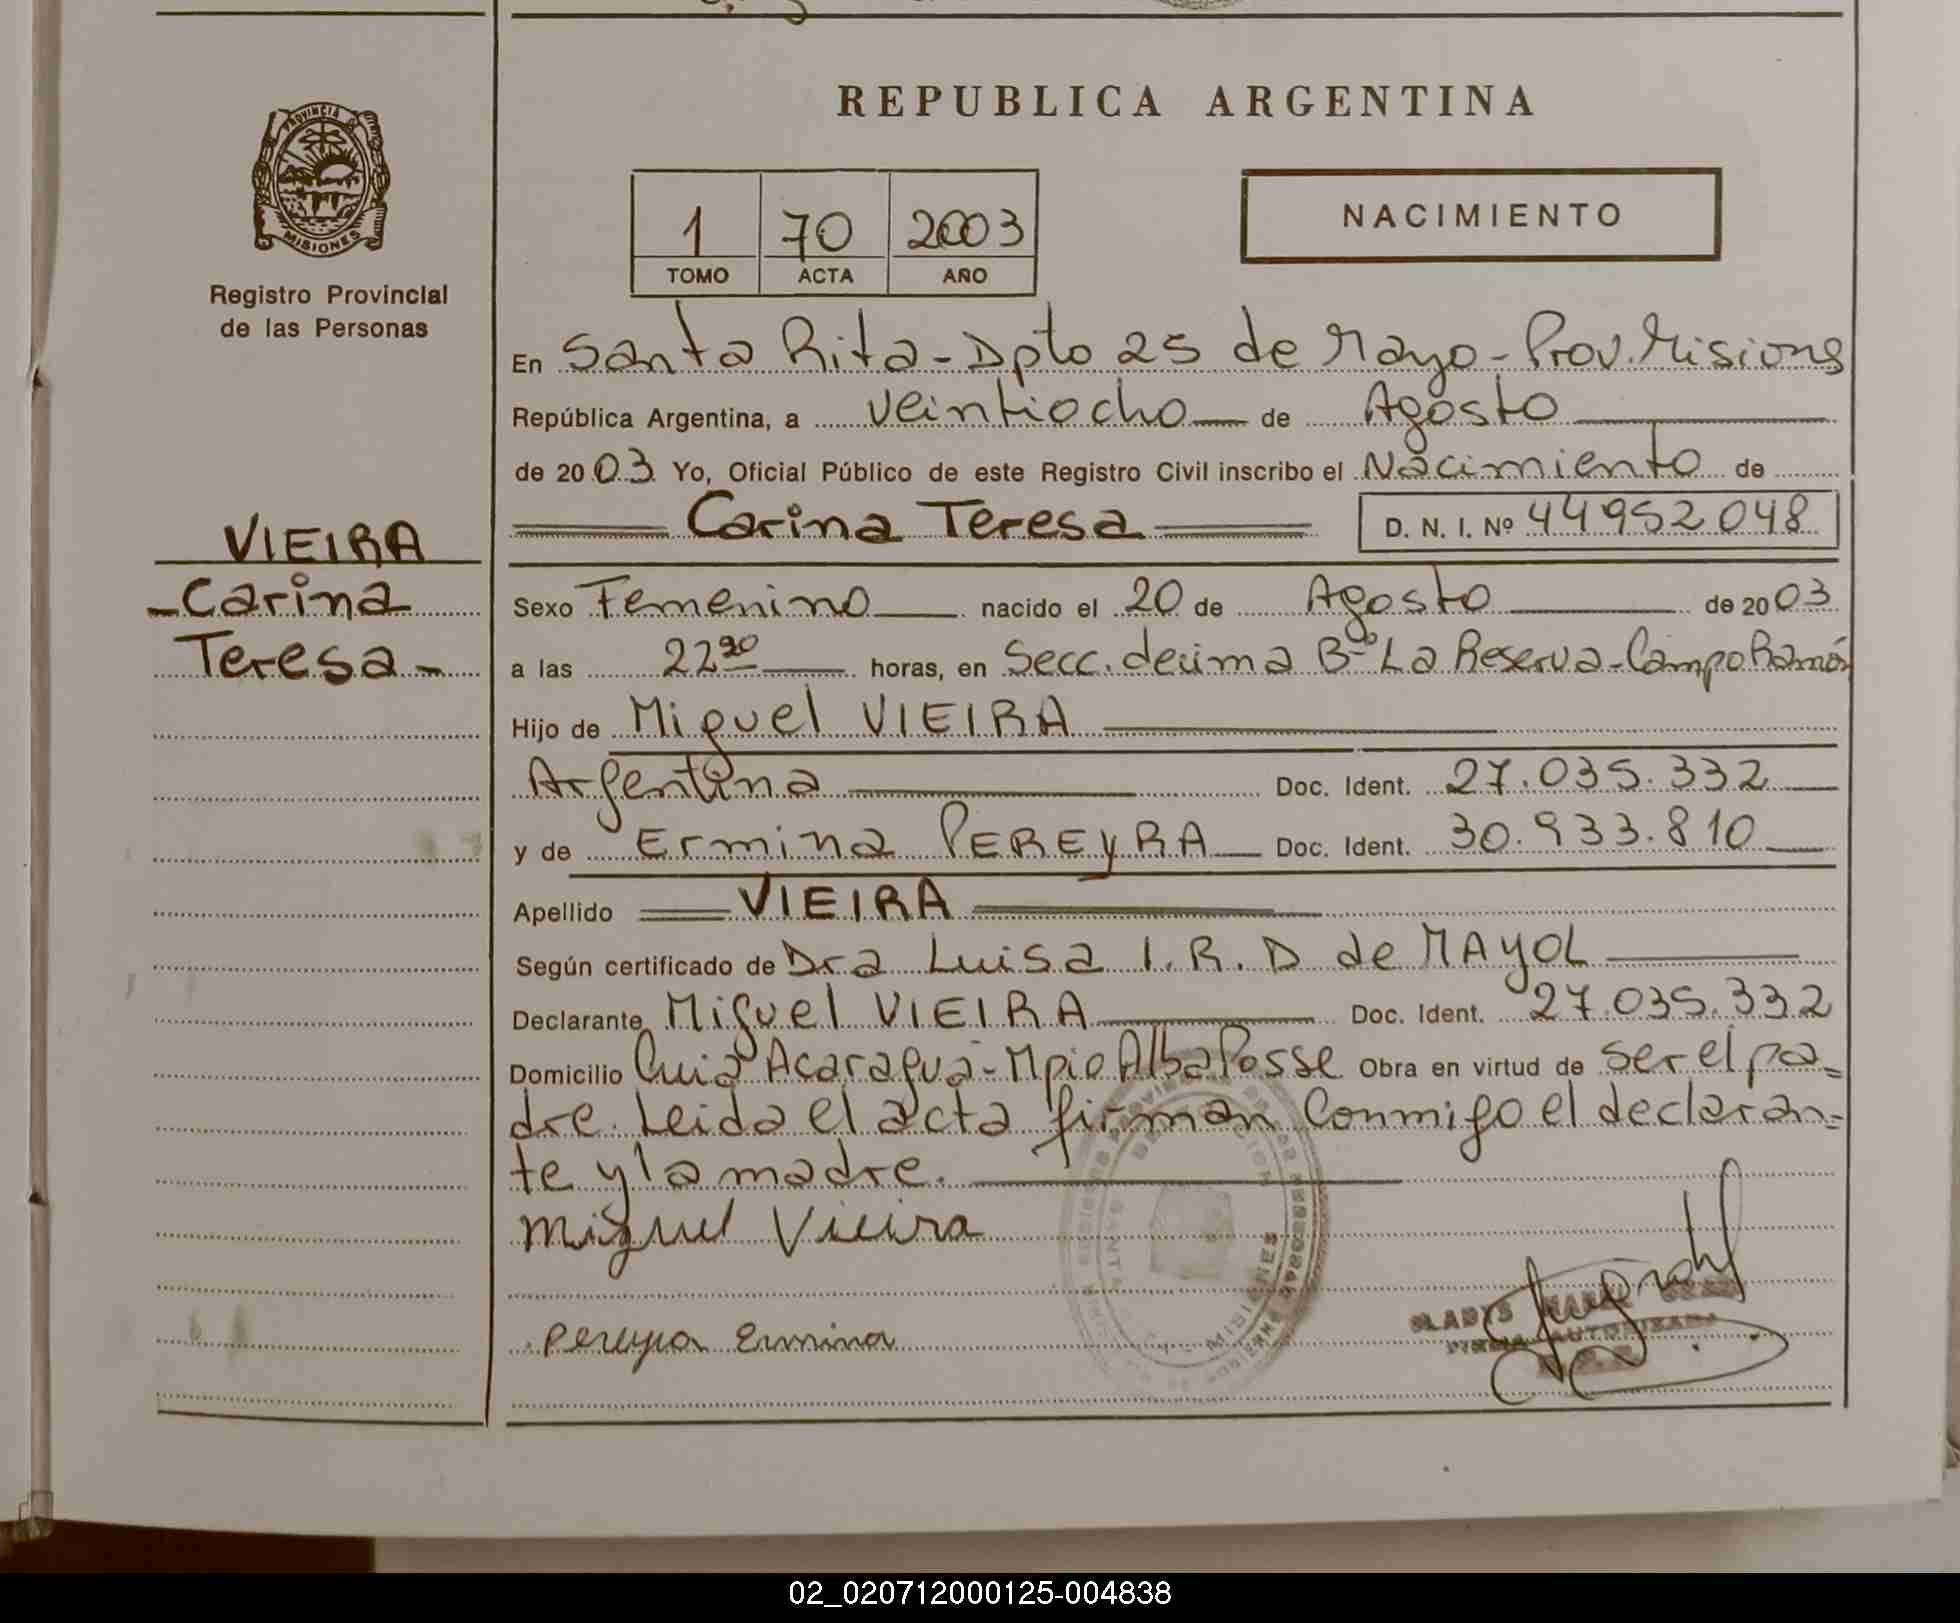 REPUBLICA ARGENTINA
PROVINCIA DE
MISIONES
Registro Provincial
de las Personas
1 70 2003
TOMO ACTA AÑO
NACIMIENTO
En Santa Rita - Dpto 25 de Mayo - Prov. Misiones
República Argentina, a veintiocho de Agosto
de 2003 Yo, Oficial Público de este Registro Civil inscribo el Nacimiento de
Carina Teresa D. N. I. Nº 44952048
VIEIRA
- Carina
Teresa -
Sexo Femenino nacido el 20 de Agosto de 2003
a las horas, en Secc. decima Bº La Reserva - Campo Ramón
Hijo de Miguel VIEIRA
Argentina Doc. Ident. 27.035.332
y de Ermina PEREYRA Doc. Ident. 30.933.810
Apellido VIEIRA
Según certificado de Dra Luisa I. R. D de MAYOL
Declarante Miguel VIEIRA Doc. Ident. 27.035.332
Domicilio Acaragua - Mpio Alba Posse Obra en virtud de ser el pa=
dre. Leida el acta firman Conmigo el declaran=
te y la madre.
Miguel Vieira
Pereyra Ermina
GLADYS
FIRMA AUTORIZADA
MISIONES
02_020712000125-004838